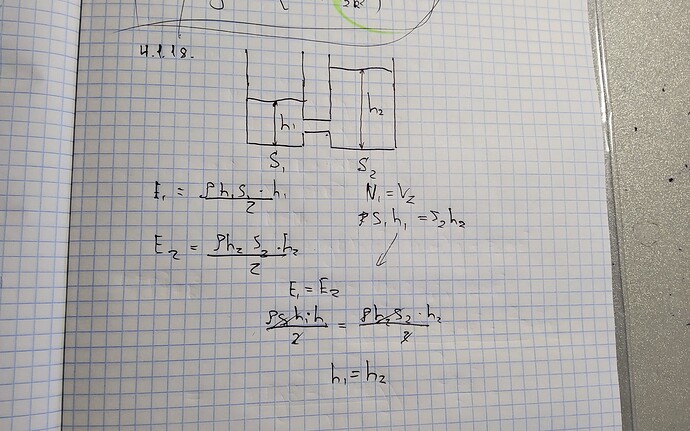 4.1.18.
h₁
h₂
S₁
S₂
E₁ = ρh₁S₁·h₁/2
V₁ = V₂
S₁h₁ = S₂h₂
E₂ = ρh₂S₂·h₂/2
E₁ = E₂
ρSh₁·h/2 = ρh₂S₂·h₂/2
h₁ = h₂